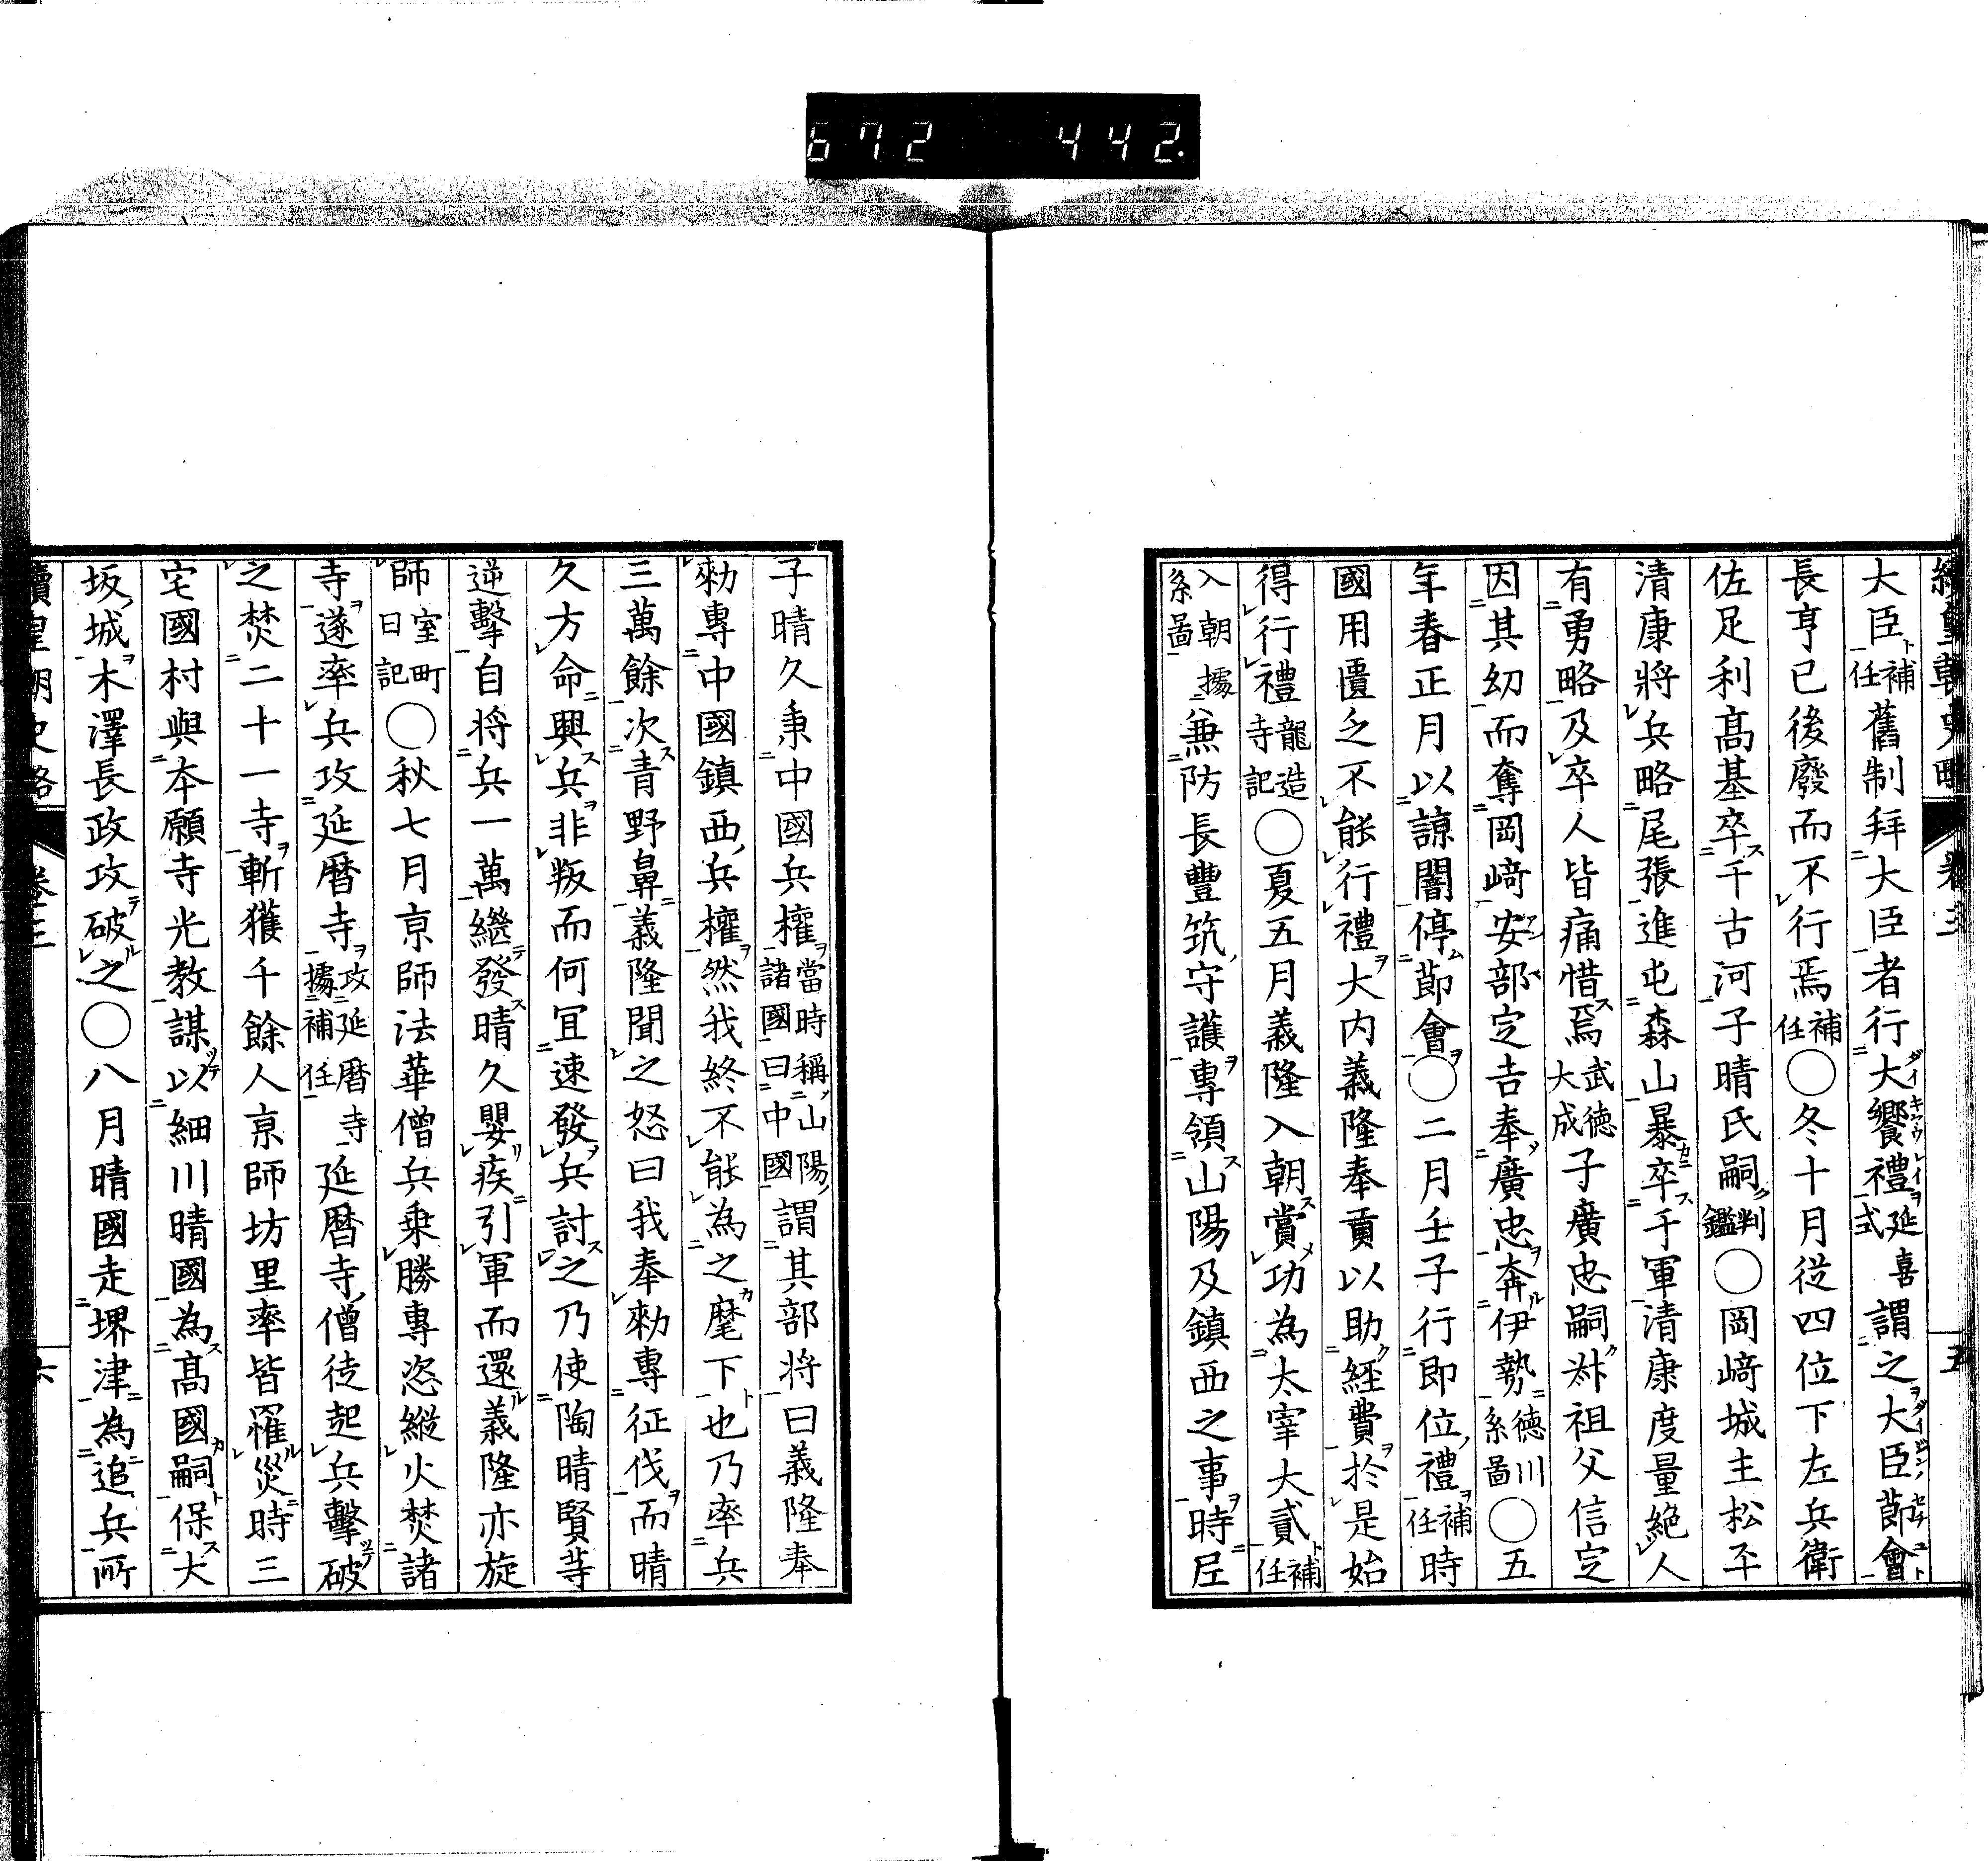 672 442.
續皇朝史略 卷三 五
大臣補任舊制拜大臣者行大饗禮延喜式謂之大臣節會
長亨已後廢而不行焉補任○冬十月從四位下左兵衛
佐足利高基卒千古河子晴氏嗣判鑑○岡崎城主松平
清康將兵略尾張進屯森山暴卒千軍清康度量絕人
有勇略及卒人皆痛惜焉武德大成子廣忠嗣叔祖父信定
因其幼而奪岡崎安部定吉奉廣忠奔伊勢德川系圖○五
年春正月以諒闇停節會○二月壬子行即位禮補任時
國用匱乏不能行禮大内義隆奉貢以助經費於是始
得行禮龍造寺記○夏五月義隆入朝賞功為太宰大貳補任
入朝據系圖兼防長豐筑守護專領山陽及鎮西之事時尼
子晴久秉中國兵權當時稱山陽諸國曰中國謂其部將曰義隆奉
勑專中國鎮西兵權然我終不能為之麾下也乃率兵
三萬餘次青野鼻義隆聞之怒曰我奉勑專征伐而晴
久方命興兵非叛而何宜速發兵討之乃使陶晴賢等
逆擊自將兵一萬繼發晴久嬰疾引軍而還義隆亦旋
師室町日記○秋七月京師法華僧兵乘勝專恣縱火焚諸
寺遂率兵攻延曆寺攻延曆寺據補任延曆寺僧徒起兵擊破
之焚二十一寺斬獲千餘人京師坊里率皆罹災時三
宅國村與本願寺光教謀以細川晴國為高國嗣保大
坂城木澤長政攻破之○八月晴國走堺津為追兵所
續皇朝史略 卷三 六